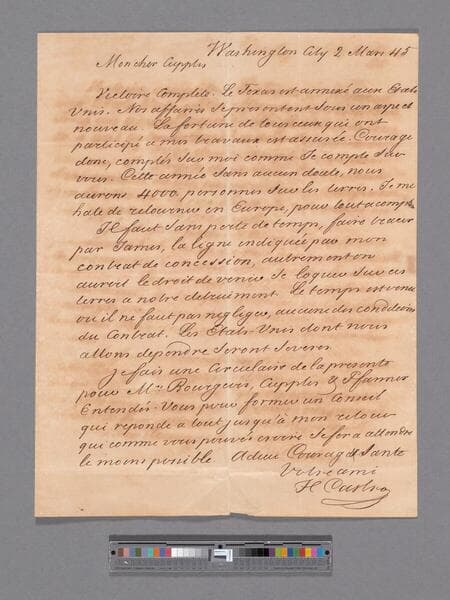 Washington City 2 Mars 45
Mon cher Cupples
Victoire Complète. Le Texas est annexé aux Etats
Unis. Nos affaires se présentent sous un aspect
nouveau. La fortune de tous ceux qui ont
participé a mes travaux est assurée. Courage
donc, comptés sur moi comme Je compte sur
vous. Cette année sans aucun doute, nous
aurons 4000 personnes sur les terres. Je me
hate de retourner en Europe, pour tout accomplir
Il faut sans perte de temps, faire
par James, la ligne indiquée par mon
contrat de concession, autrement on
aurait le droit de venir se loger sur ces
terres a notre detriment. Le temps est venu
ou il ne faut pas negliger, aucune des conditions
du Contrat. Les Etats-Unis dont nous
allons dependre seront severes.
Je fais une Circulaire de la presente
pour Mrs Bourgeois, Cupples & Pfanner
Entendés-Vous pour former un Conseil
qui reponde a tout jusqu'à mon retour
qui comme vous pouvés croire se fera attendre
le moins posible. Adieu Courage & Santé
Votre ami
H Castro